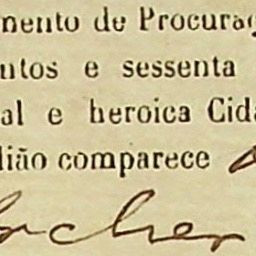 mento de Procuraç
ntos e sessenta
al e heroica Cida
lião comparece